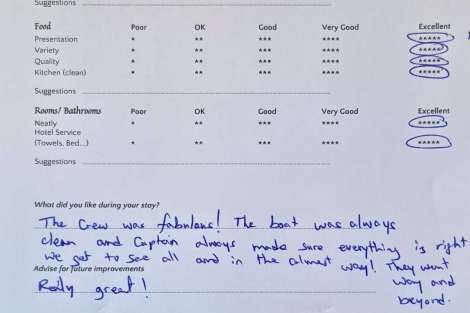 Suggestions
Food Poor OK Good Very Good Excellent
Presentation * ** *** **** *****
Variety * ** *** **** *****
Quality * ** *** **** *****
Kitchen (clean) * ** *** **** *****
Suggestions
Rooms/ Bathrooms Poor OK Good Very Good Excellent
Neatly * ** *** **** *****
Hotel Service
(Towels, Bed...) * ** *** **** *****
Suggestions
What did you like during your stay?
The Crew was fabulous! The boat was always
clean and Captain always made sure everything is right
We got to see all and in the calmest way! They went
way and
beyond.
Advise for future improvements
Really great!